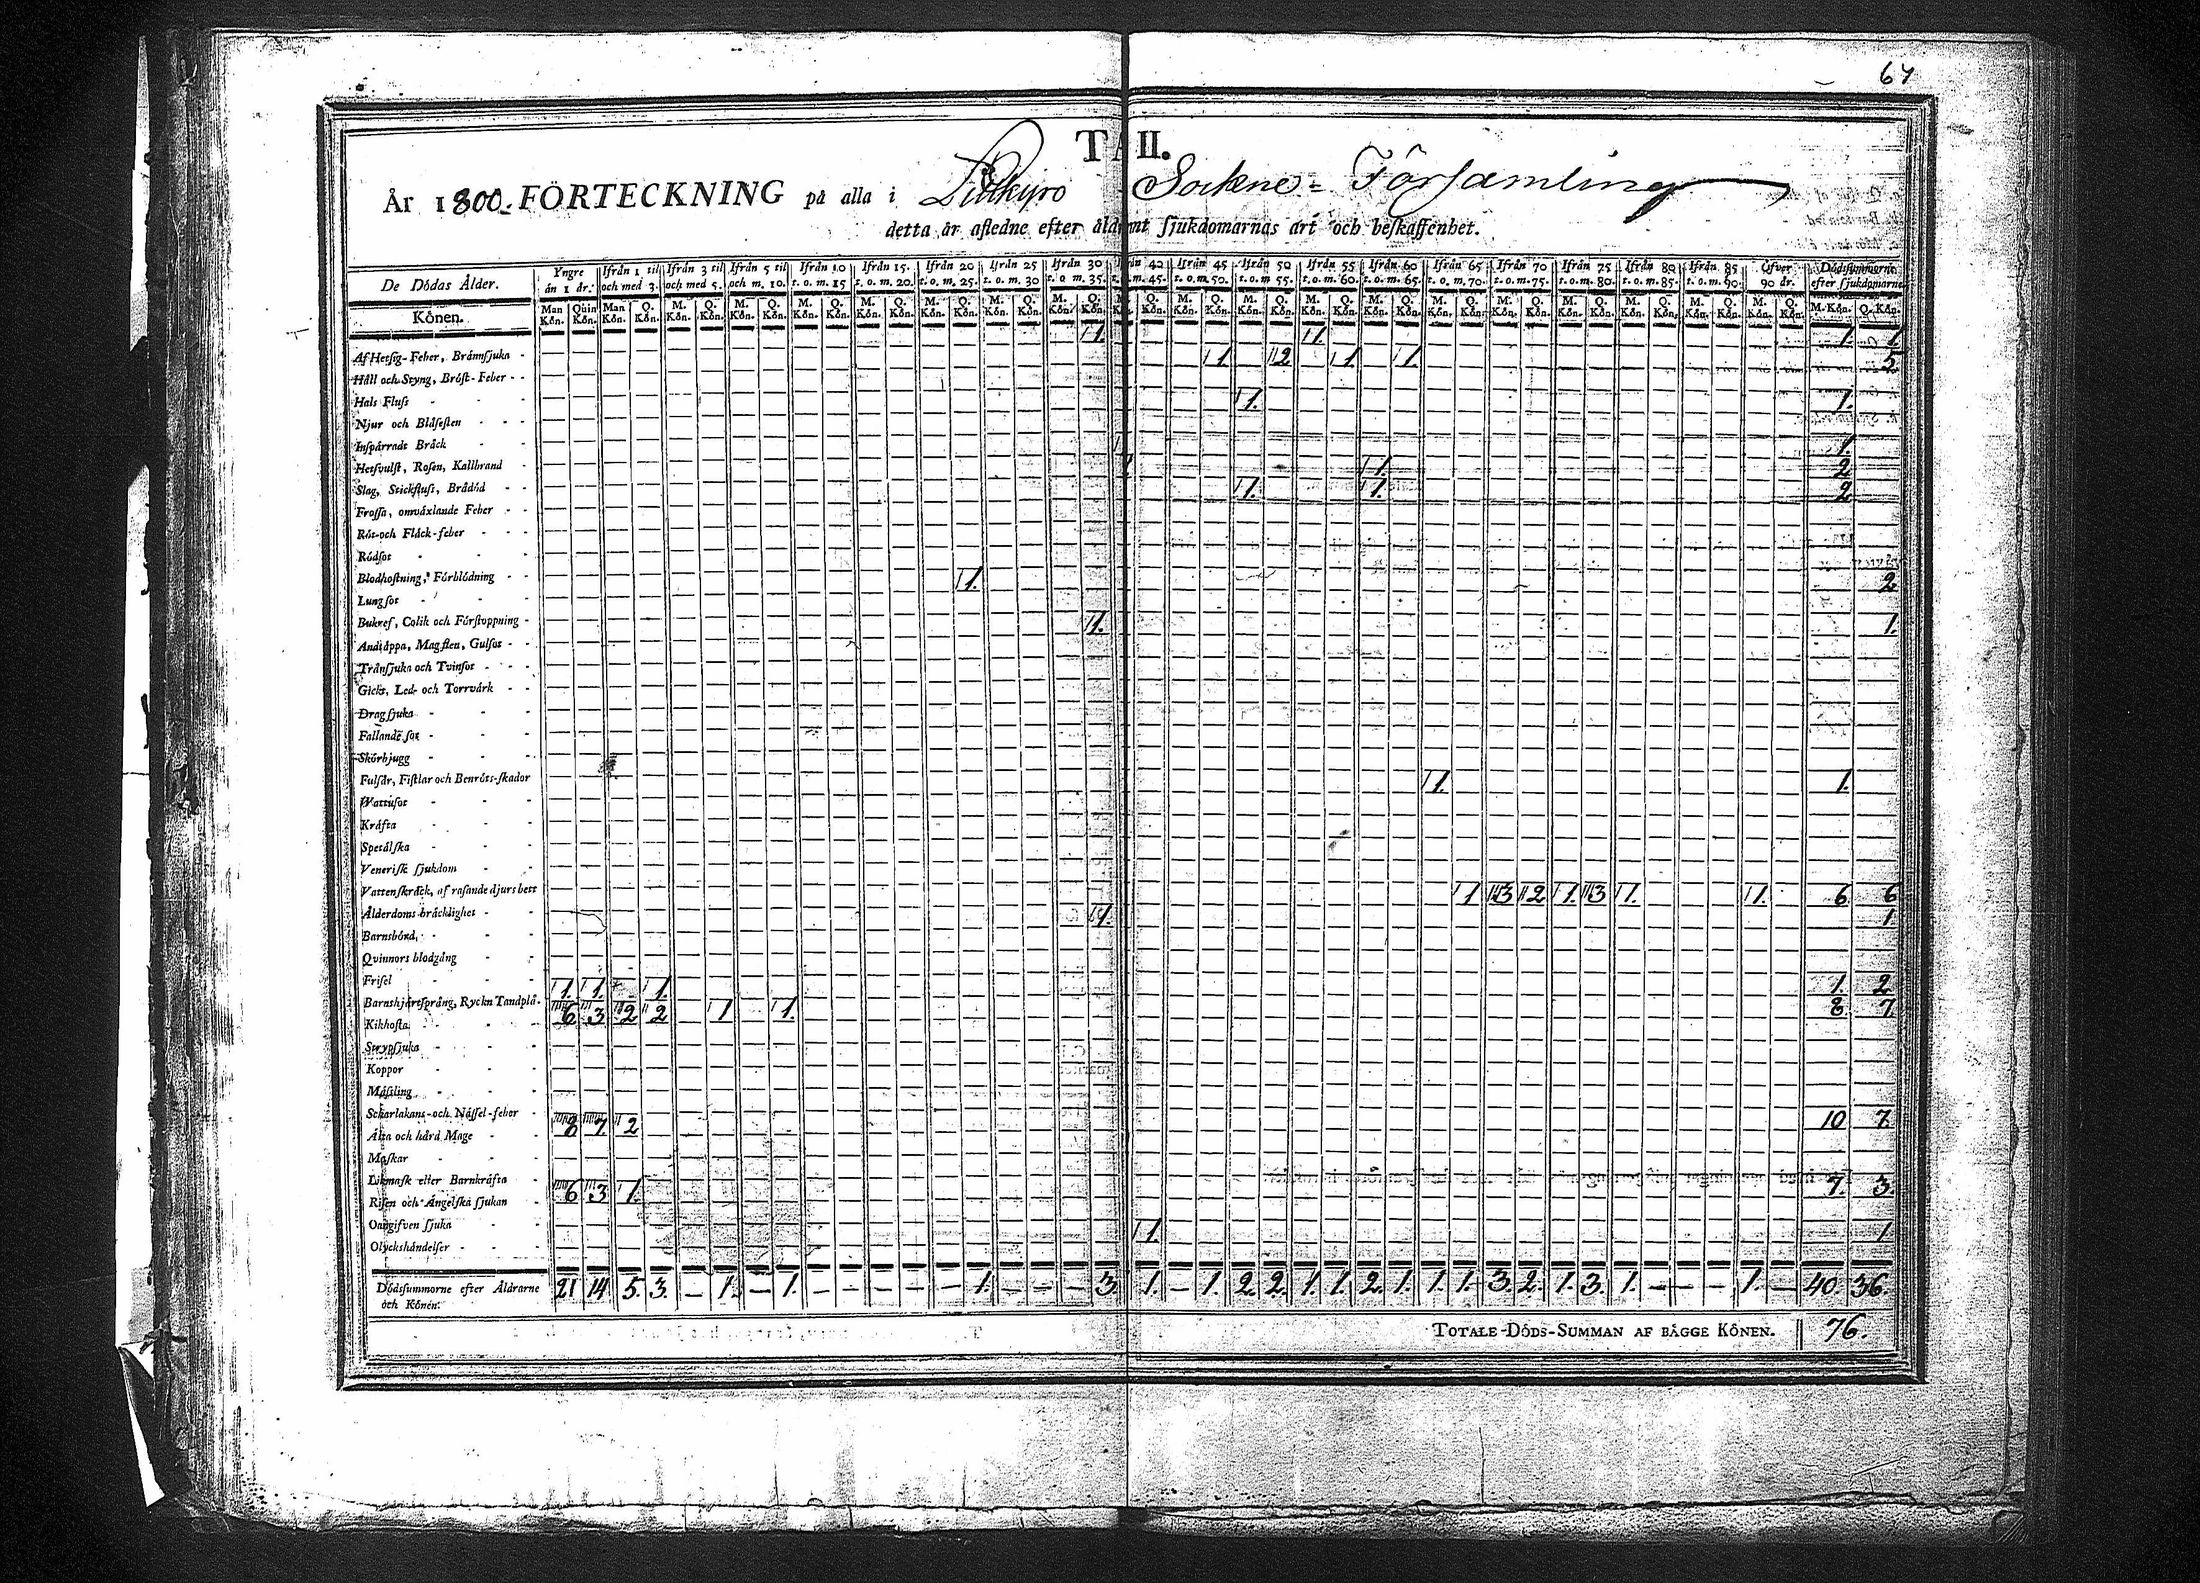 67
TA II.
År 1800. FÖRTECKNING på alla i Lillkyro Sockne-Församling
detta år afledne efter åld mt sjukdomarnas art och beskaffenhet.
De Dödas Ålder. Yngre än 1 år. Ifrån 1 til och med 3. Ifrån 3 til och med 5. Ifrån 5 til och m. 10. Ifrån 10 t. o. m. 15 Ifrån 15. t. o. m. 20. Ifrån 20 t. o. m. 25. Ifrån 25 t. o. m. 30 Ifrån 30 t. o m. 35. 40 t. o. m. 45. Ifrån 45 t. o. m. 50. Ifrån 50 t. o. m 55. Ifrån 55 t. o. m. 60. Ifrån 60 t. o. m. 65. Ifrån 65 t. o. m. 70. Ifrån 70 t. o. m. 75. Ifrån 75 t. o. m. 80. Ifrån 80 t. o. m. 85. Ifrån 85 t. o. m. 90. Öfver 90 år. Dödssummorne efter sjukdomarne
Könen. Man Kön. Quin Kön. Man Kön. Q. Kön. M. Kön. Q. Kön. M. Kön. Q. Kön. M. Kön. Q. Kön. M. Kön. Q. Kön. M. Kön. Q. Kön. M. Kön. Q. Kön. M. Kön. Q. Kön. Q. Kön. M. Kön. Q. Kön. M. Kön. Q. Kön. M. Kön. Q. Kön. M. Kön. Q. Kön. M. Kön. Q. Kön. M. Kön. Q. Kön. M. Kön. Q. Kön. M. Kön. Q. Kön. M. Kön. Q. Kön. M. Kön. Q. Kön. M. Kön. Q. Kön.
Af Hetsig-Feber, Brännsjuka - 1. 1. 1. 1.
Håll och Styng, Bröst-Feber - - 1. 2 1. 1. 5
Hals Fluss - - -
Njur och Blåsesten - - - 1. 1.
Inspärrade Bråck - -
Hetsvulst, Rosen, Kallbrand - 1.
Slag, Stickfluss, Brådöd - - 1. 2
Frossa, omväxlande Feber - - 1. 1. 2
Röt-och Fläck-feber - - -
Rödsot - - -
Blodhostning, Förblödning - -
Lungsot - - - 1. 2
Bukref, Colik och Förstoppning -
Andtäppa, Magsten, Gulsot - - 1. 1.
Tränsjuka och Tvinsot - -
Gickt, Led- och Torrvärk - -
Dragsjuka - - -
Fallande sot - - -
Skörbjugg - - -
Fulsår, Fistlar och Benröts-skador
Wattusot - - - 1. 1.
Kräfta - - -
Spetälska - - -
Venerisk sjukdom - -
Vattenskräck, af rasande djurs bett
Ålderdoms bräcklighet - - 1 3 2 1. 3 1. 1. 6 6
Barnsbörd, - - - 1. 1
Qvinnors blodgång - -
Frisel - - -
Barnshjertsprång, Ryckn Tandplå- 1. 1. 1. 1. 2
Kikhosta - - - 6 3 2 2 1 1. 8. 7.
Strypsjuka - - -
Koppor - - -
Mässling - - -
Scharlakans-och Nässel-feber -
Ålta och hård Mage - - 8 7 2 10 7.
Maskar - - -
Likmask eller Barnkräfta -
Risen och Ängelska sjukan - 6 3 1. 7. 3.
Oangifven sjuka - -
Olyckshändelser - - - 1. 1
Dödssummorne efter Åldrarne och Könen. 21 14 5. 3. — 1. — 1. — — — — — 1. — — — 3. 1. — 1. 2. 2. 1. 1. 2. 1. 1. 1. 3. 2. 1. 3. 1. — — — 1. — 40. 36.
TOTALE DÖDS-SUMMAN AF BÄGGE KÖNEN. 76.